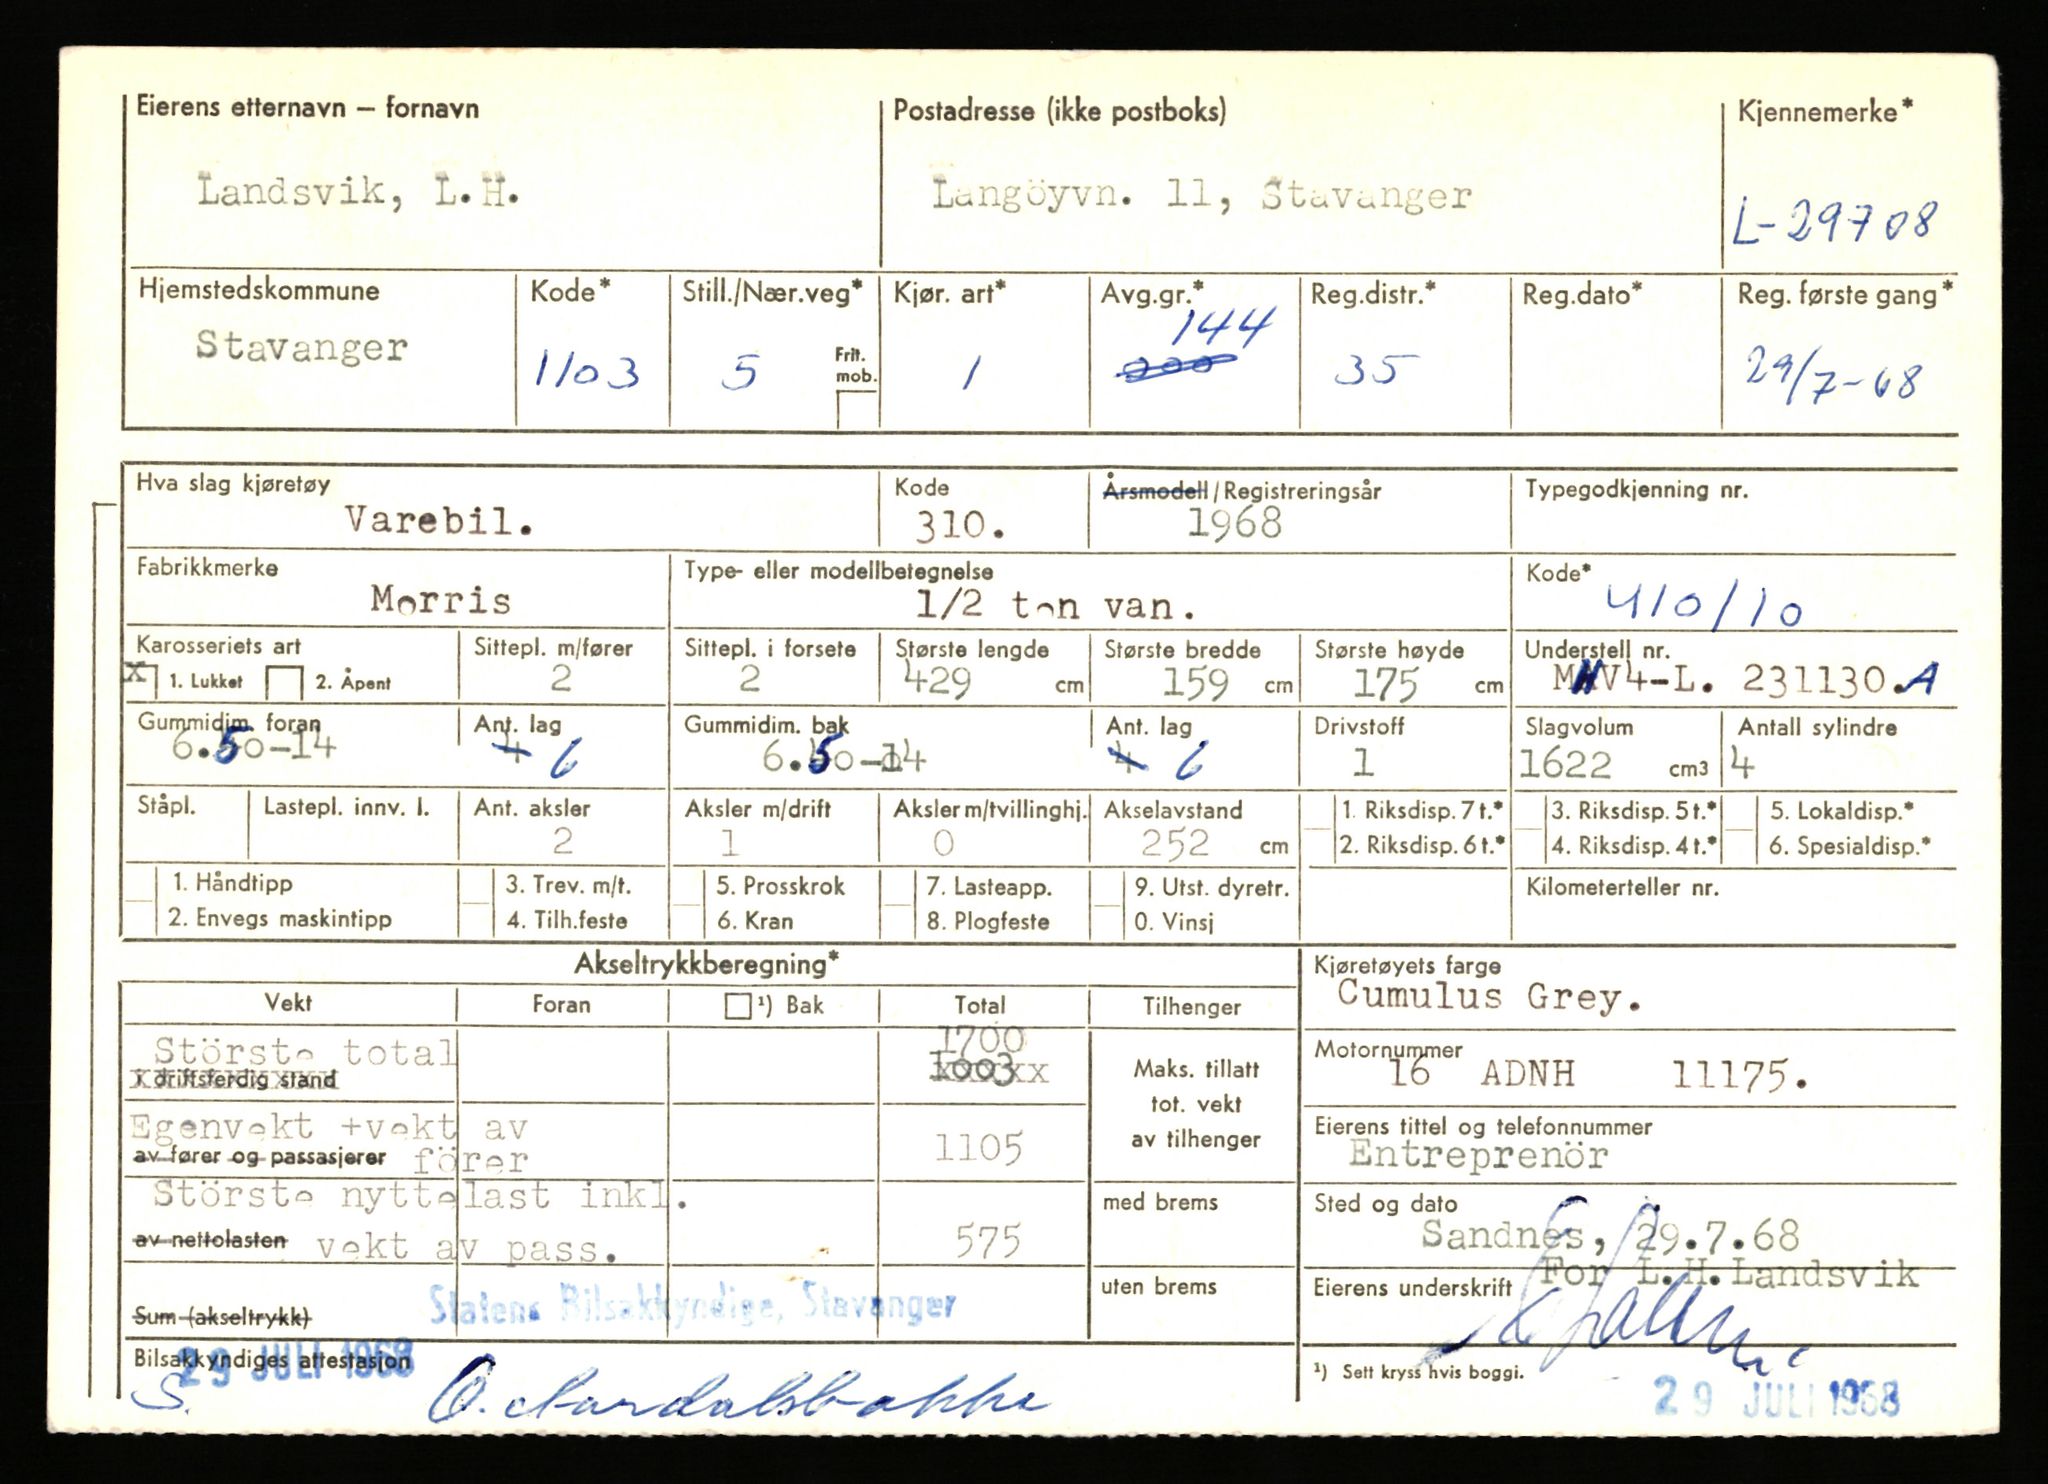 Eierens etternavn – fornavn Postadresse (ikke postboks) Kjennemerke*
Landsvik, L.H. Langöyvn. 11, Stavanger L-29708
Hjemstedskommune Kode* Still./Nær.veg* Kjør. art* Avg.gr.* Reg.distr.* Reg.dato* Reg. første gang*
144
Stavanger 1103 5 Frit. mob. 1 200 35 29/7-68
Hva slag kjøretøy Kode Årsmodell/Registreringsår Typegodkjenning nr.
Varebil. 310. 1968
Fabrikkmerke Type- eller modellbetegnelse Kode*
Morris 1/2 ton van. 410/10
Karosseriets art Sittepl. m/fører Sittepl. i forsete Største lengde Største bredde Største høyde Understell nr.
X 1. Lukket 2. Åpent 2 2 429 cm 159 cm 175 cm MHV4-L. 231130.A
Gummidim. foran Ant. lag Gummidim. bak Ant. lag Drivstoff Slagvolum Antall sylindre
6.50-14 4 6 6.50-14 4 6 1 1622 cm3 4
Ståpl. Lastepl. innv. l. Ant. aksler Aksler m/drift Aksler m/tvillinghj. Akselavstand 1. Riksdisp. 7 t.* 3. Riksdisp. 5 t.* 5. Lokaldisp.*
2 1 0 252 cm 2. Riksdisp. 6 t.* 4. Riksdisp. 4 t.* 6. Spesialdisp.*
1. Håndtipp 3. Trev. m/t. 5. Prosskrok 7. Lasteapp. 9. Utst. dyretr. Kilometerteller nr.
2. Envegs maskintipp 4. Tilh.feste 6. Kran 8. Plogfeste 0. Vinsj
Akseltrykkberegning* Kjøretøyets farge
Cumulus Grey.
Vekt Foran ¹) Bak Total Tilhenger
Störste total 1700
i driftsferdig stand 1003
Maks. tillatt
tot. vekt
av tilhenger
Motornummer
16 ADNH 11175.
Egenvekt +vekt av 1105
av fører og passasjerer förer
Eierens tittel og telefonnummer
Entreprenör
Störste nyttelast inkl. med brems
av nettolasten vekt av pass. 575
Sted og dato
Sandnes, 29.7.68
For L.H.Landsvik
uten brems Eierens underskrift
Statens Bilsakkyndige, Stavanger
Sum (akseltrykk)
29 JULI 1968
Bilsakkyndiges attestasjon
¹) Sett kryss hvis boggi.
S.
29 JULI 1968